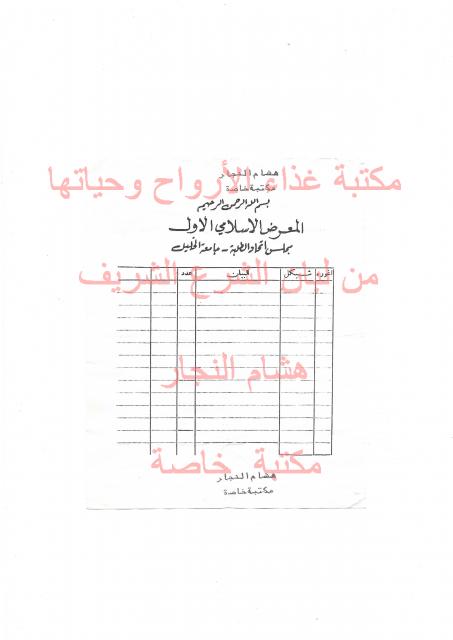 هشام النجار
مكتبة غذاء الأرواح وحياتها
مكتبة خاصة
بسم الله الرحمن الرحيم
المعرض الاسلامي الاول
مجلس اتحاد الطلبة - جامعة الخليل
من لبان الشرع الشريف
اغوره شيكل البيان عدد
هشام النجار
مكتبة خاصة
هشام النجار
مكتبة خاصة